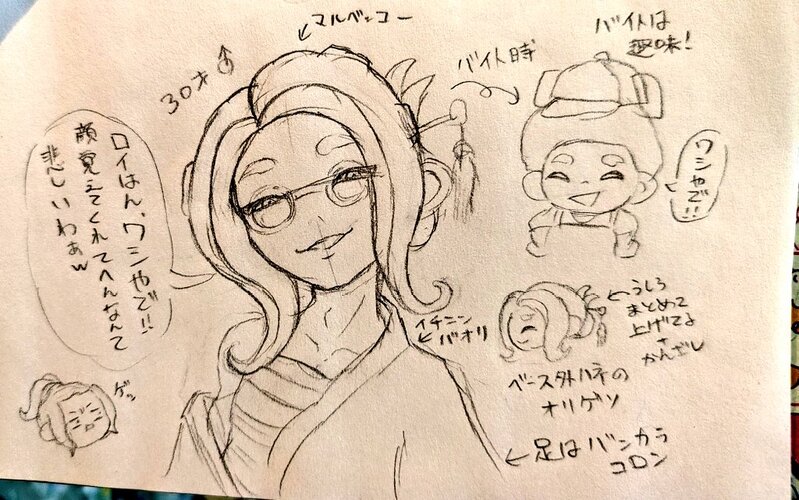 マルベッコー
30才♂
バイト時
バイトは
趣味!
ワシやで!!
ロイはん、ワシやで!!
顔覚えてくれてへんなんて
悲しいわぁw
イチニン
バオリ
うしろ
まとめて
上げてる
+
かんざし
ベース外ハネの
オリゲソ
ゲッ
足はバンカラ
コロン